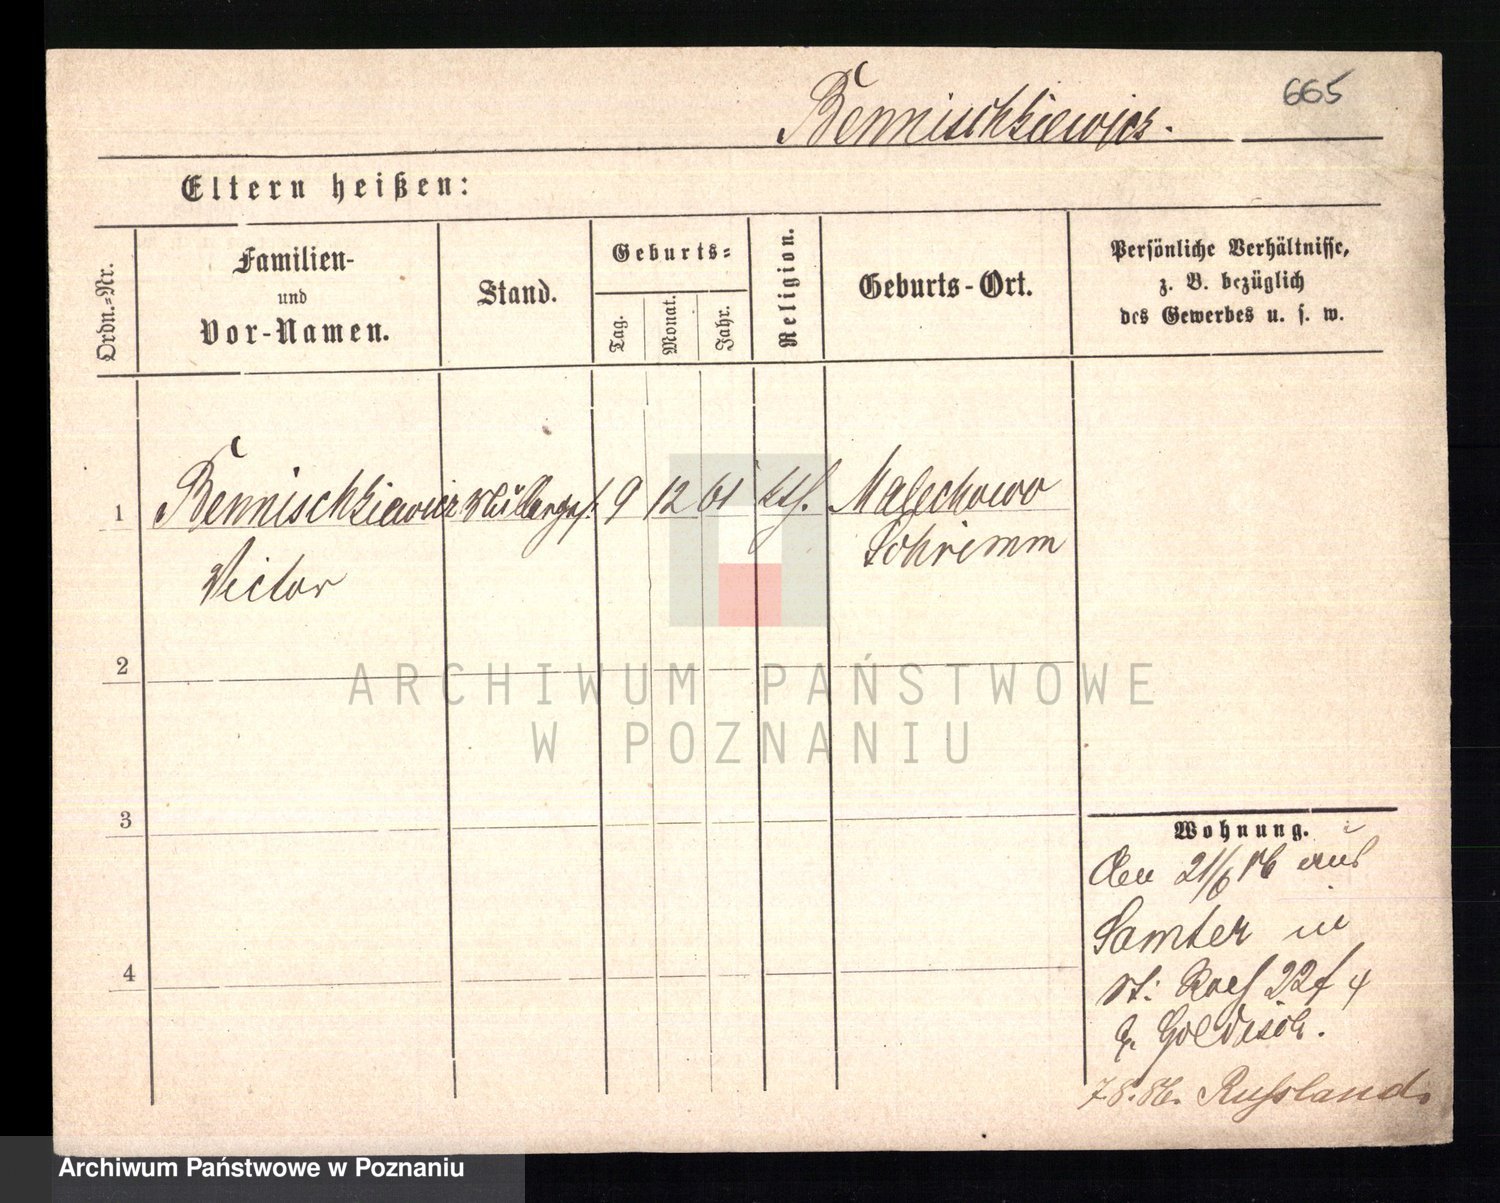 665
Bennischkiewicz.
Eltern heißen:
Ordn.-Nr.
Familien-
und
Vor-Namen.
Stand.
Geburts-
Tag.
Monat.
Jahr.
Religion.
Geburts-Ort.
Persönliche Verhältnisse,
z. B. bezüglich
des Gewerbes u. s. w.
1 Bennischkiewicz 9 12 61 kth. Malechowo
Victor
Schrimm
2
3
4
Wohnung.
Den 21/6 86 aus
Samter in
22
7.8.86. Russland.
ARCHIWUM PAŃSTWOWE
W POZNANIU
Archiwum Państwowe w Poznaniu